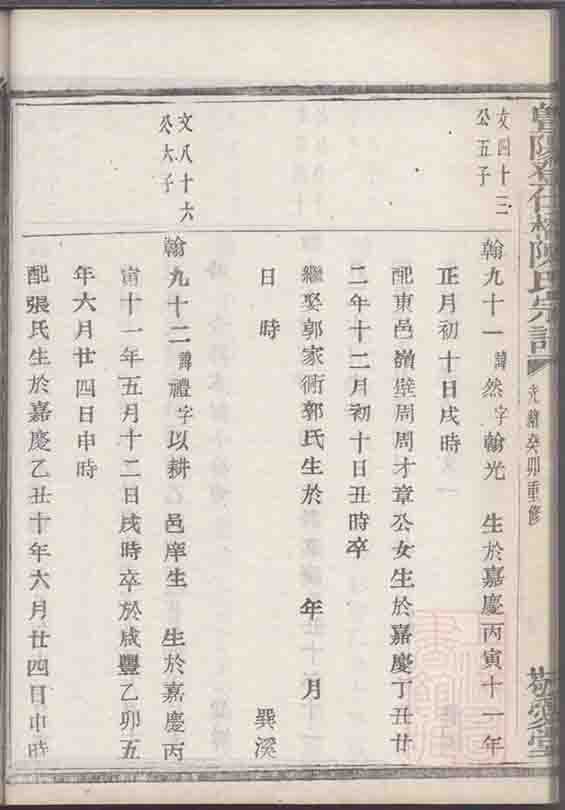 暨陽 陳氏宗譜
光緒癸卯重修
敬愛堂
文四十三
公五子
翰九十一 諱然字翰光 生於嘉慶丙寅十一年
正月初十日戌時
配東邑嶺壁周周才章公女生於嘉慶丁丑廿
二年十二月初十日丑時卒
繼娶郭家衖郭氏生於 年 月
日 時 巽溪
文八十六
公大子
翰九十二 諱禮字以耕 邑庠生 生於嘉慶丙
寅十一年五月十二日戌時卒於咸豐乙卯五
年六月廿四日申時
配張氏生於嘉慶乙丑十年六月廿四日申時